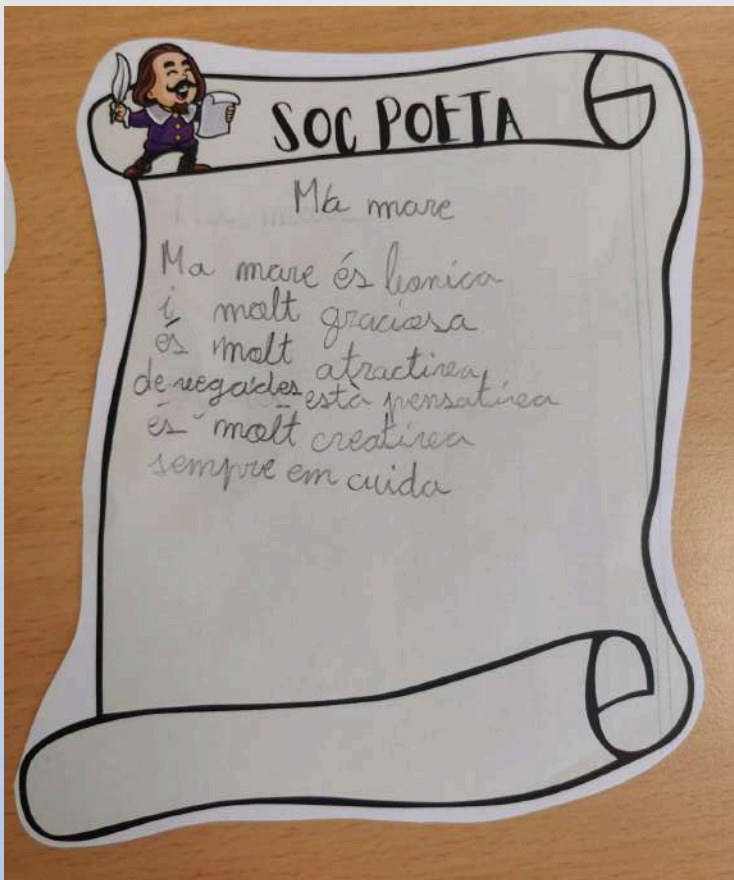 SOC POETA
Ma mare
Ma mare és bonica
i molt graciosa
és molt atractiva,
de vegades està pensativa
és molt creativa
sempre em cuida